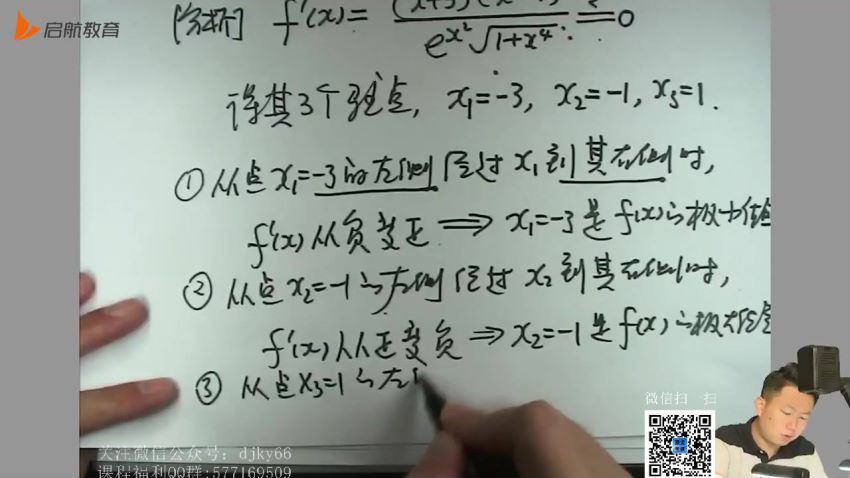 启航教育
[分析] f'(x)= =0
e^{x²}√(1+x⁴)
得其3个驻点, x₁=-3, x₂=-1, x₃=1.
①从点x₁=-3的左侧经过x₁到其右侧时,
f'(x)从负变正⟹x₁=-3是f(x)的极小值点
②从点x₂=-1的左侧经过x₂到其右侧时,
f'(x)从正变负⟹x₂=-1是f(x)的极大值点
③从点x₃=1的左
微信扫一扫
关注微信公众号: djky66
课程福利QQ群:577169509